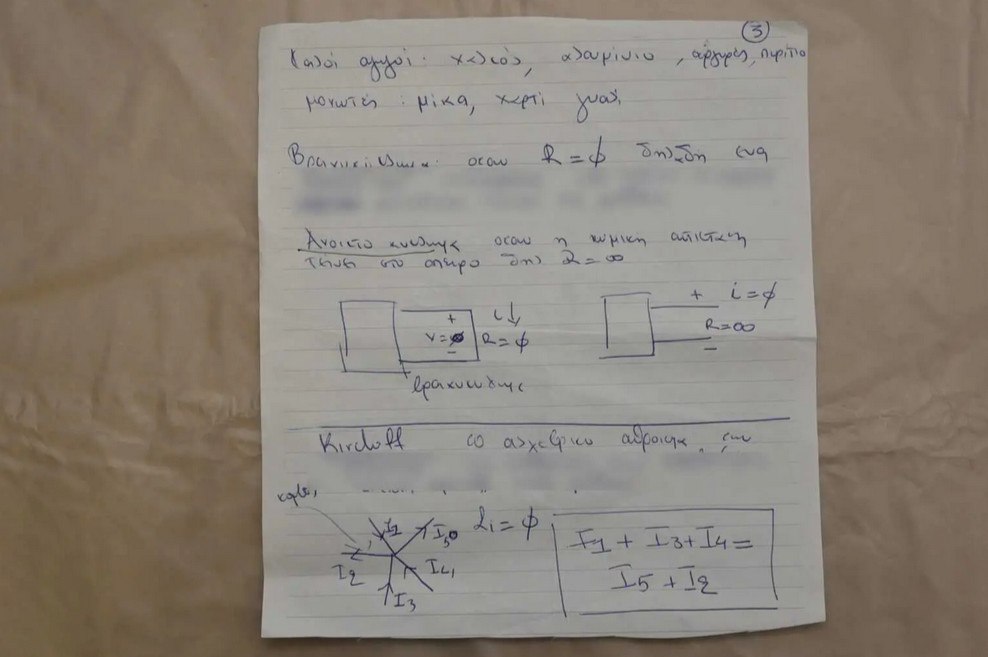 3
Καλοί αγωγοί: χαλκός, αλουμίνιο, άργυρος,
μονωτές: μίκα, χαρτί γυαλί
Βραχυκύκλωμα: οταν R=ϕ δηλαδή ένα
Ανοιχτο κυκλωμα οταν η ωμικη αντισταση
τεινει στο απειρο δηλ R=∞
+ i
V=ϕ R=ϕ
-
+ i=ϕ
R=∞
-
βραχυκυκλωμα
Kirchoff το αλγεβρικο αθροισμα των
κομβος
I1 I5 Σi=ϕ
I2 I4
I3
I1 + I3 + I4 =
I5 + I2